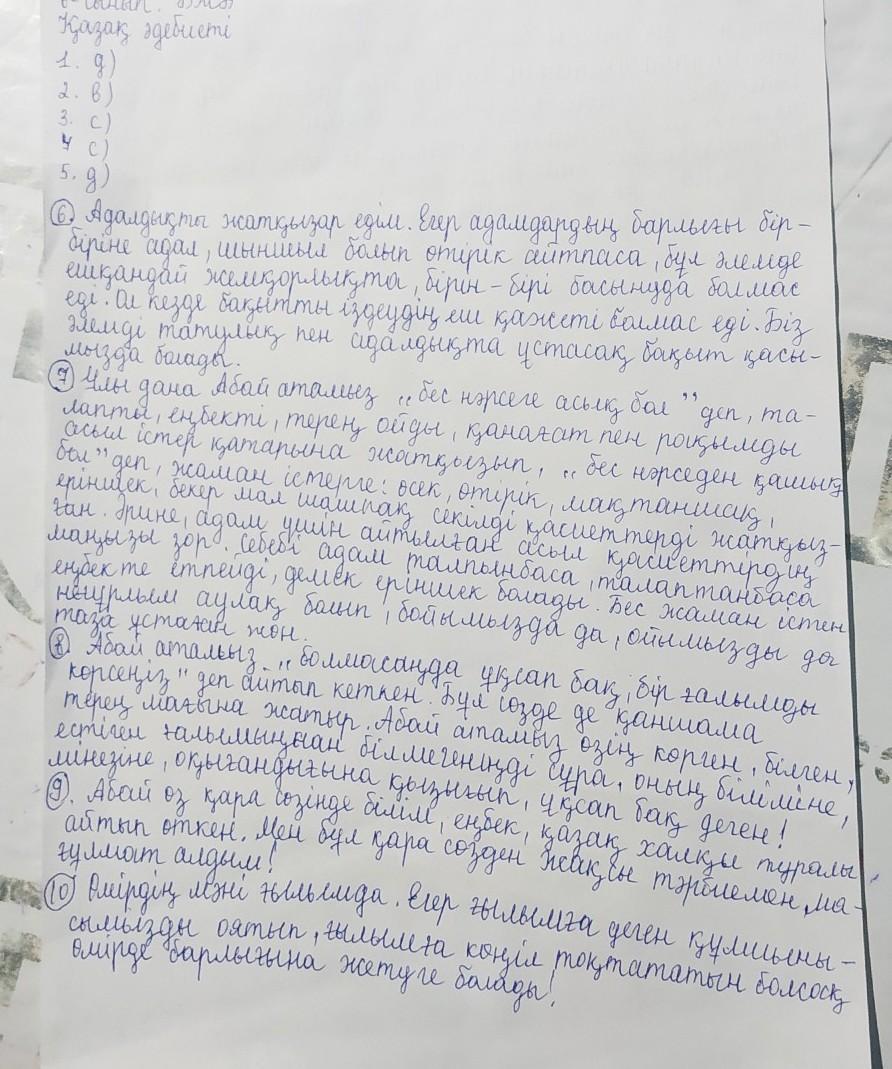 Қазақ әдебиеті
1. д)
2. в)
3. с)
4 с)
5. д)
6. Адалдықты жатқызар едім. Егер адамдардың барлығы бір-
біріне адал, шыншыл болып өтірік айтпаса, бұл әлемде
ешқандай жемқорлықта, бірін-бірі басынуда болмас
еді. Ол кезде бақытты іздеудің еш қажеті болмас еді. Біз
әлемді татулық пен адалдықта ұстасақ бақыт қасы-
мызда болады.
7 Ұлы дана Абай атамыз „бес нәрсеге асық бол" деп, та-
лапты, еңбекті, терең ойды, қанағат пен рақымды
асыл істер қатарына жатқызып, „бес нәрседен қашық
бол" деп, жаман істерге: өсек, өтірік, мақтаншақ,
еріншек, бекер мал шашпақ секілді қасиеттерді жатқыз-
ған. Әрине, адам үшін айтылған асыл қасиеттердің
маңызы зор. Себебі адам талпынбаса, талаптанбаса
еңбек те етпейді, демек еріншек болады. Бес жаман істен
неғұрлым аулақ болып, бойымызда да, ойымызды да
таза ұстаған жөн.
8 Абай атамыз „болмасаңда ұқсап бақ, бір ғалымды
көрсеңіз" деп айтып кеткен. Бұл сөзде де қаншама
терең мағына жатыр. Абай атамыз өзің көрген, білген,
естіген ғалымыңнан білмегеніңді сұра, оның біліміне,
мінезіне, оқығандығына қызығып, ұқсап бақ деген!
9. Абай өз қара сөзінде білім, еңбек, қазақ халқы туралы
айтып өткен. Мен бұл қара сөзден жақсы тәрбиемен, ма-
ғұлмат алдым!
10 Өмірдің мәні ғылымда. Егер ғылымға деген құлшыны-
сымызды оятып, ғылымға көңіл тоқтататын болсақ
өмірде барлығына жетуге болады!